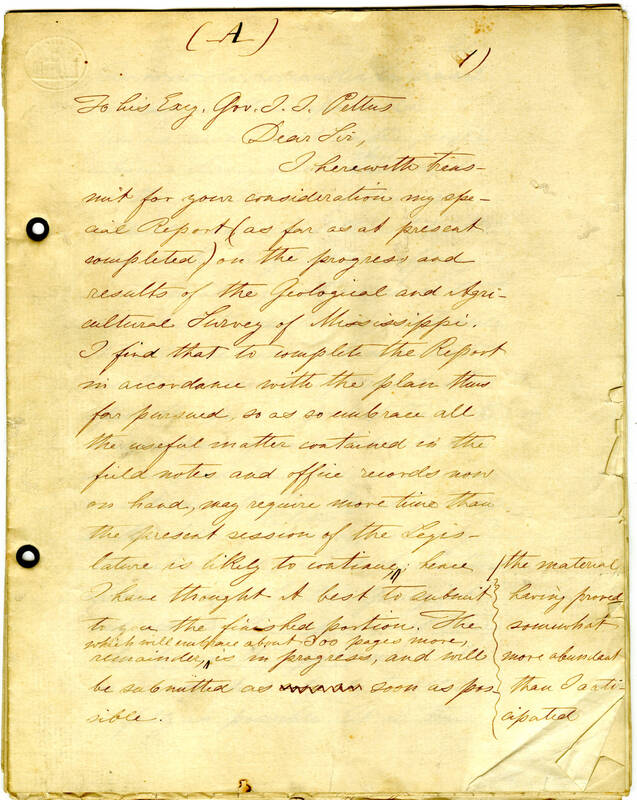 (A)
1)
To his Excy. Gov. J. J. Pettus
Dear Sir,
I herewith trans-
mit for your consideration my spe-
cial Report (as far as at present
completed) on the progress and
results of the Geological and Agri-
cultural Survey of Mississippi.
I find that to complete the Report
in accordance with the plan thus
far pursued, so as so embrace all
the useful matter contained in the
field notes and office records now
on hand, may require more time than
the present session of the Legis-
lature is likely to continue; hence
I have thought it best to submit
to you the finished portion. The
which will embrace about 200 pages more,
remainder, is in progress, and will
be submitted as soon as pos-
sible.
the material
having proved
somewhat
more abundant
than I anti-
cipated